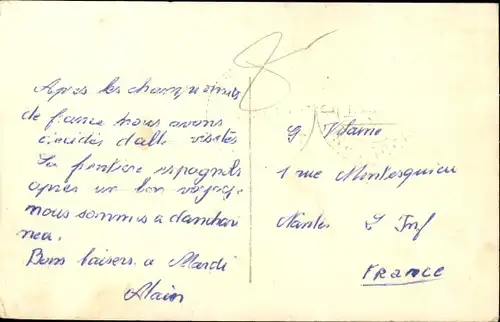 Après les championnats
de france nous avons
cécidés d'allé visités
La frontière espagnole
après un bon voyage
nous sommes a danchari
nea.
Bons baisers a Mardi
Alain
8
G. Vilaine
1 rue Montesquieu
Nantes L. Inf
FRANCE